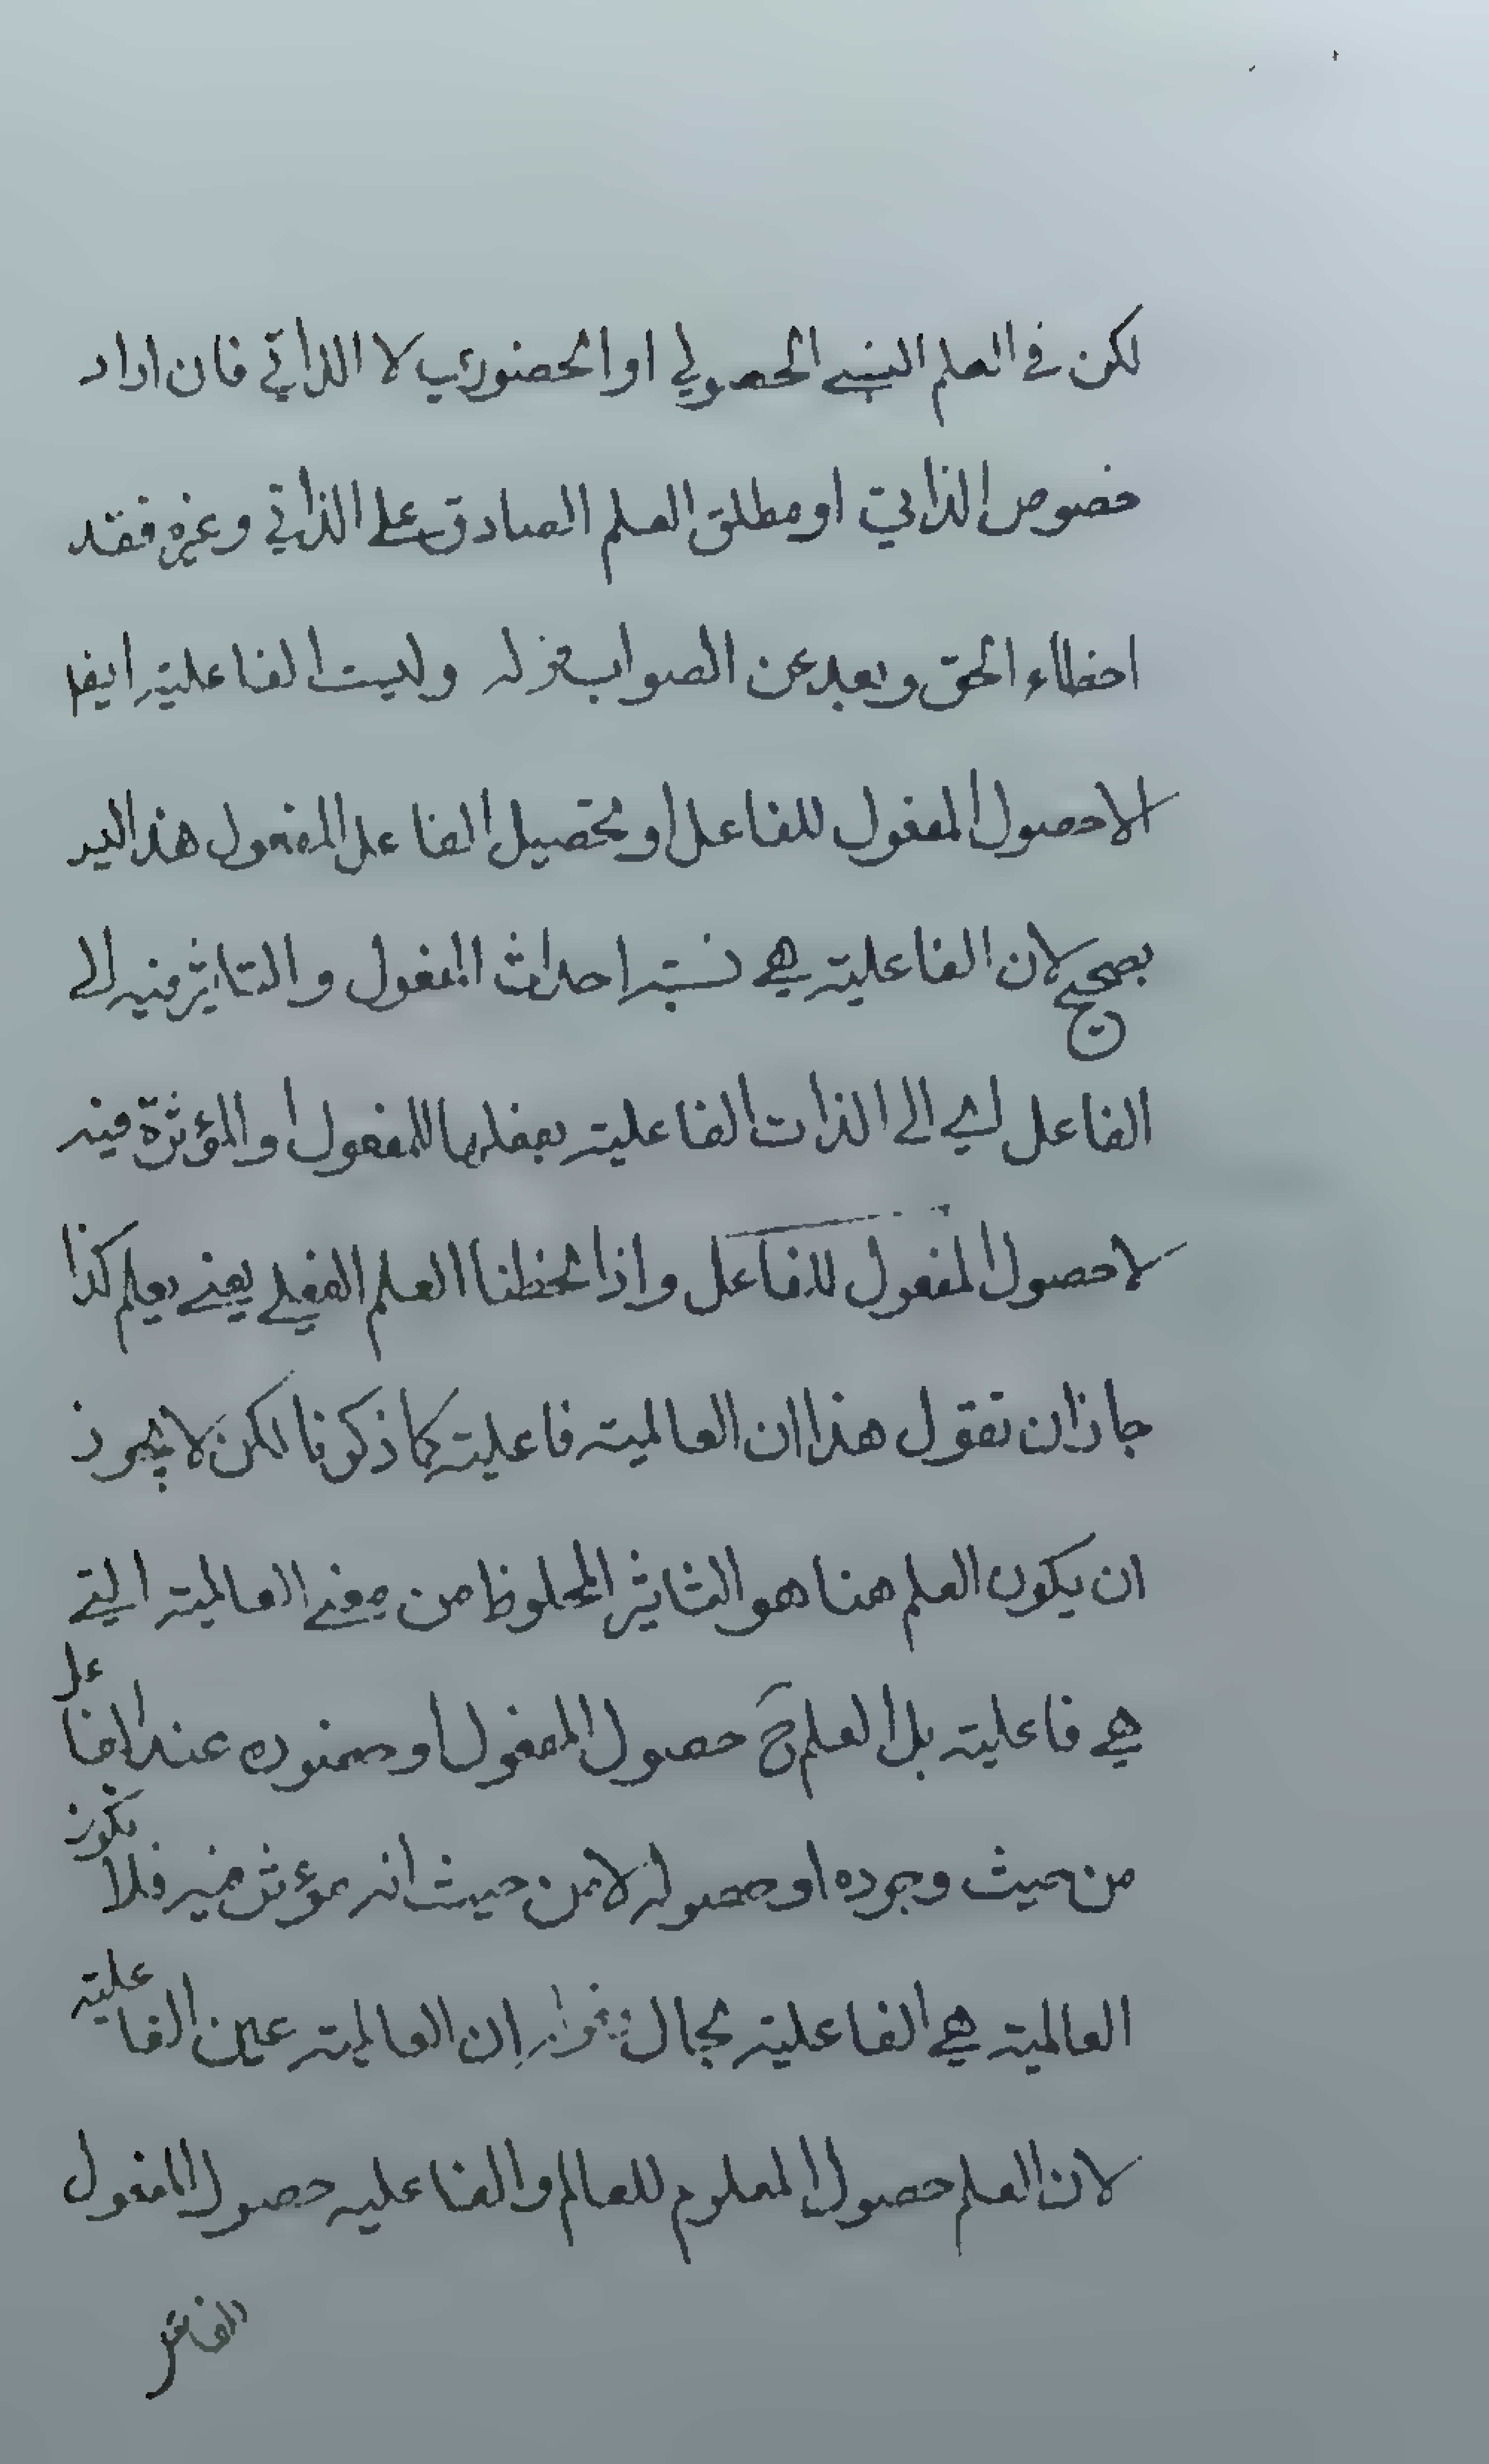 لكن في العلم النسبي الحصولي او الحضوري لا الذاتي فان اراد
خصوص الذاتي او مطلق العلم الصادق على الذاتي وغيره فقد
اخطاء الحق وبعد عن الصواب قوله وليست الفاعلية ايضا
الا حصول المفعول للفاعل او تحصيل الفاعل المفعول هذا ليس
بصحيح لان الفاعلية هي نسبة احداث المفعول والتاثير فيه الى
الفاعل اي الى الذات الفاعلية بفعلها للمفعول والمؤثرة فيه
لا حصول المفعول للفاعل واذا لحظنا العلم الفعلي يعني يعلم كذا
جاز ان نقول هذا ان العالمية فاعلية كما ذكرنا لكن لا يجوز
ان يكون العلم هنا هو التاثير الملحوظ من معنى العالمية التي
هي فاعلية بل العلم ح حصول المفعول او حضوره عند الفاعل
من حيث وجوده او حصوله لا من حيث انه مؤثر فيه فلا تكون
العالمية هي الفاعلية بحال ان العالمية عين الفاعلية
لان العلم حصول المعلوم للعالم والفاعليه حصول المفعول